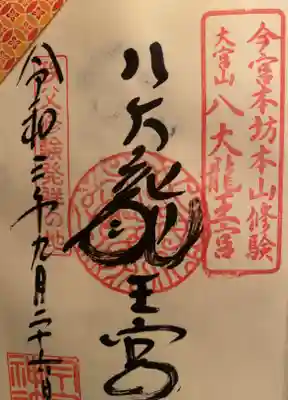 今宮本坊本山修験
大宮山
八大龍王宮
八大龍王宮
秩父修験発祥の地
令和二年九月二十六日